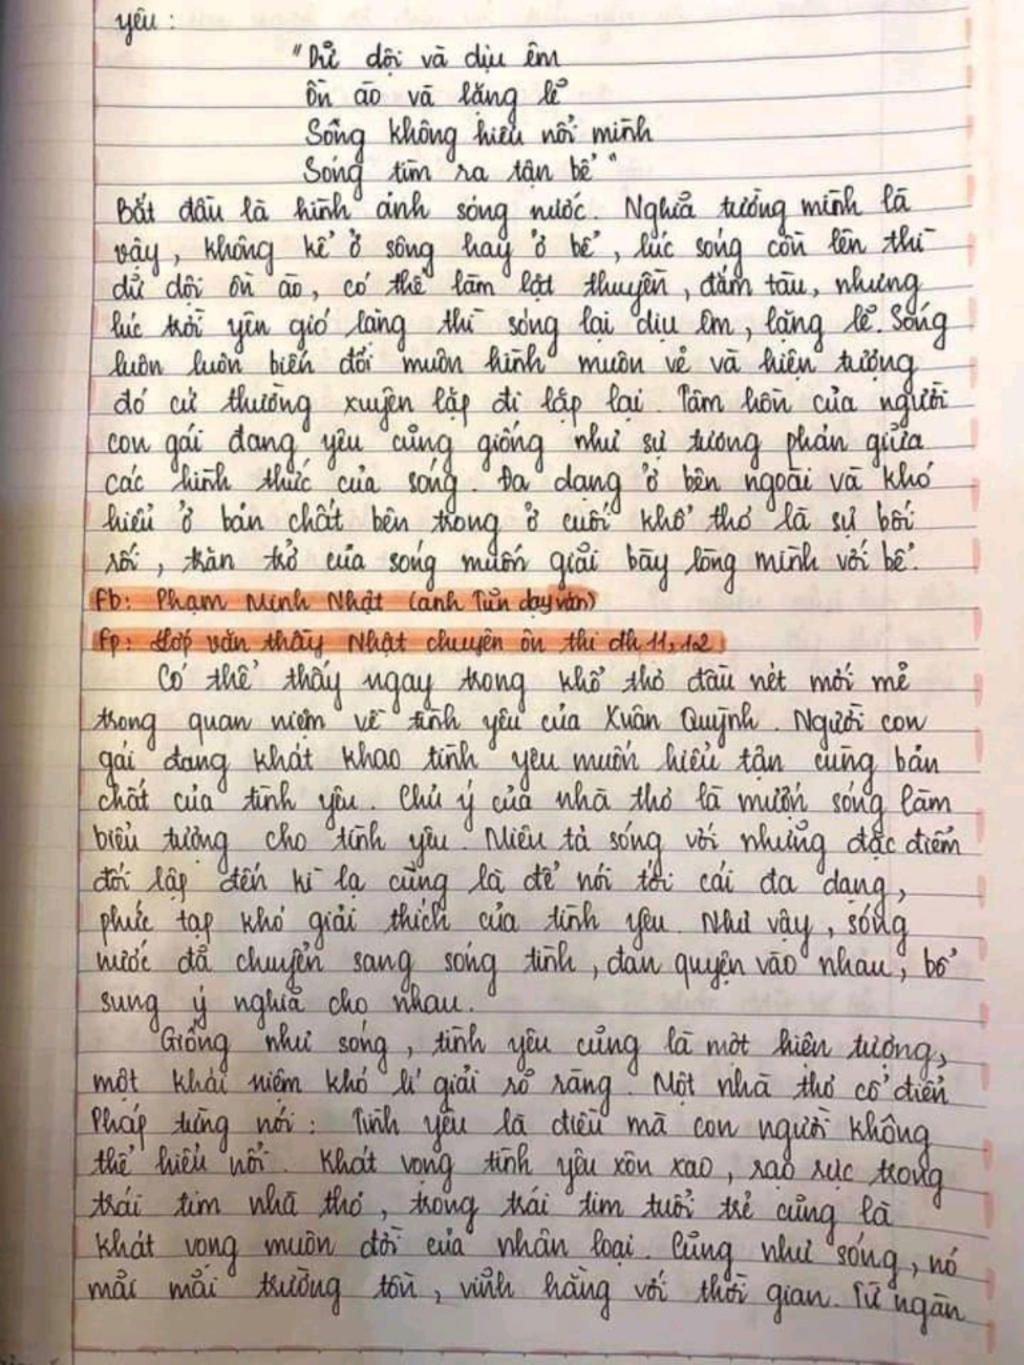 yêu :
"Dữ dội và dịu êm
Ồn ào và lặng lẽ
Sông không hiểu nổi mình
Sóng tìm ra tận bể"
Bắt đầu là hình ảnh sóng nước. Nghĩa tường minh là
vậy, không kể ở sông hay ở bể, lúc sóng cồn lên thì
dữ dội ồn ào, có thể làm lật thuyền, đắm tàu, nhưng
lúc trời yên gió lặng thì sóng lại dịu êm, lặng lẽ. Sóng
luôn luôn biến đổi muôn hình muôn vẻ và hiện tượng
đó cứ thường xuyên lặp đi lặp lại. Tâm hồn của người
con gái đang yêu cũng giống như sự tương phản giữa
các hình thức của sóng. Đa dạng ở bên ngoài và khó
hiểu ở bản chất bên trong ở cuối khổ thơ là sự bối
rối, trăn trở của sóng muốn giải bày lòng mình với bể.
Fb: Phạm Minh Nhật (anh Tiến dạy văn)
Fp: Lớp văn thầy Nhật chuyên ôn thi đh 11, 12
Có thể thấy ngay trong khổ thơ đầu nét mới mẻ
trong quan niệm về tình yêu của Xuân Quỳnh. Người con
gái đang khát khao tình yêu muốn hiểu tận cùng bản
chất của tình yêu. Chủ ý của nhà thơ là mượn sóng làm
biểu tượng cho tình yêu. Miêu tả sóng với những đặc điểm
đối lập đến kì lạ cũng là để nói tới cái đa dạng,
phức tạp khó giải thích của tình yêu. Như vậy, sóng
nước đã chuyển sang sóng tình, đan quyện vào nhau, bổ
sung ý nghĩa cho nhau.
Giống như sóng, tình yêu cũng là một hiện tượng,
một khái niệm khó lí giải rõ ràng. Một nhà thơ cổ điển
Pháp từng nói: Tình yêu là điều mà con người không
thể hiểu nổi. Khát vọng tình yêu xôn xao, rạo rực trong
trái tim nhà thơ, trong trái tim tuổi trẻ cũng là
khát vọng muôn đời của nhân loại. Cũng như sóng, nó
mãi mãi trường tồn, vĩnh hằng với thời gian. Từ ngàn